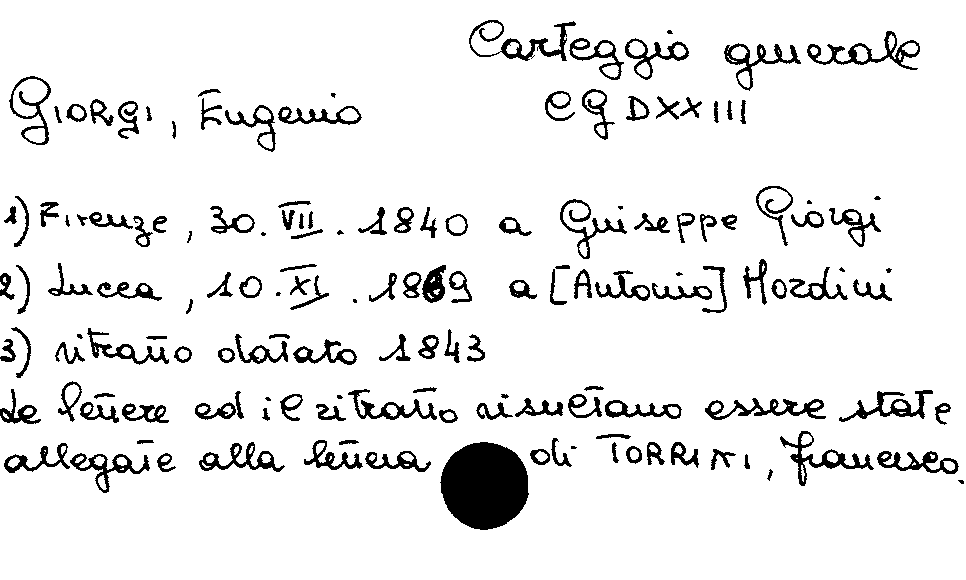 Carteggio generale
GIORGI, Eugenio CG DXXIII
1) Firenze, 30. VII. 1840 a Guiseppe Giorgi
2) Lucca, 10. XI. 1869 a [Antonio] Mordini
3) ritratto datato 1843
Le lettere ed il ritratto risultano essere state
allegate alla lettera di TORRINI, Francesco.